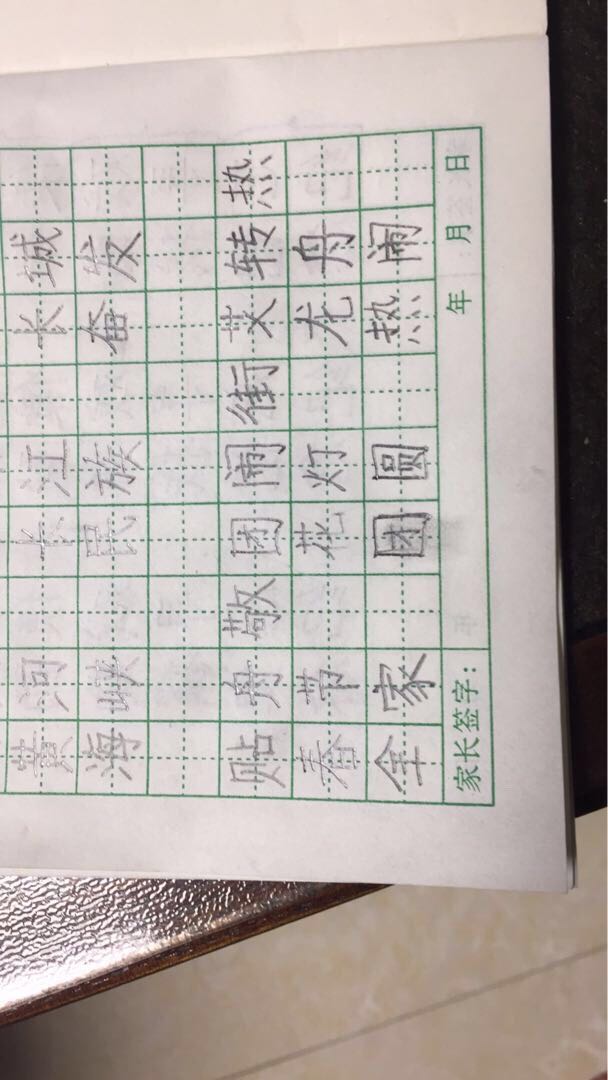 黄河 长江 长城
海峡 民族 奋发
贴舟敬团闹街艾转热
春节 花灯 龙舟
全家 团圆 热闹
家长签字: 年 月 日